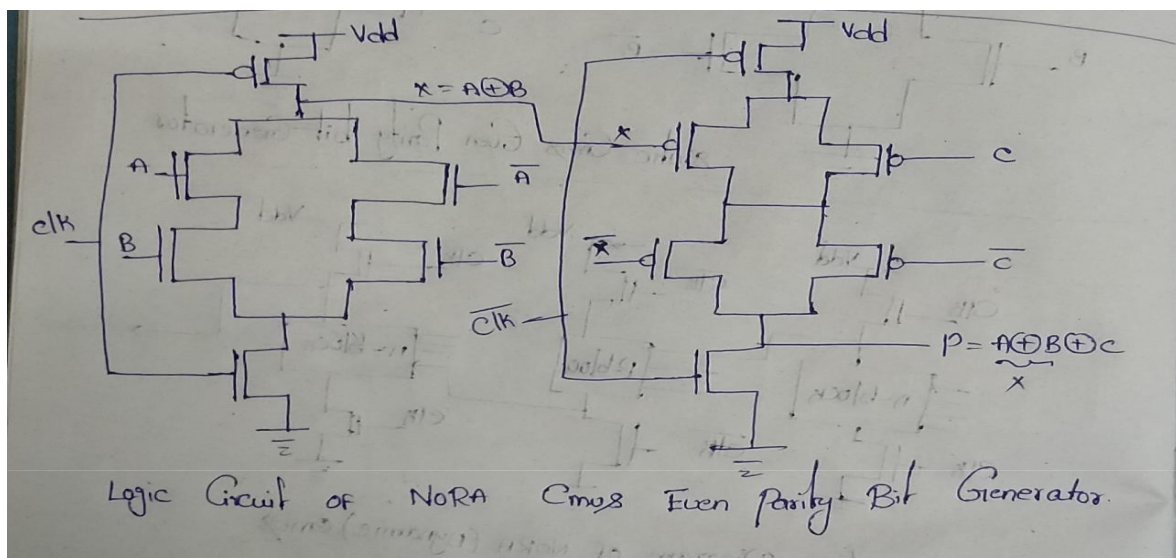 Vdd
Vdd
x = A⊕B
x
A
A̅
C
clk
B
B̅
x̅
C̅
c̅l̅k̅
P = A⊕B⊕C
x
Logic Circuit of NORA Cmos Even Parity Bit Generator.